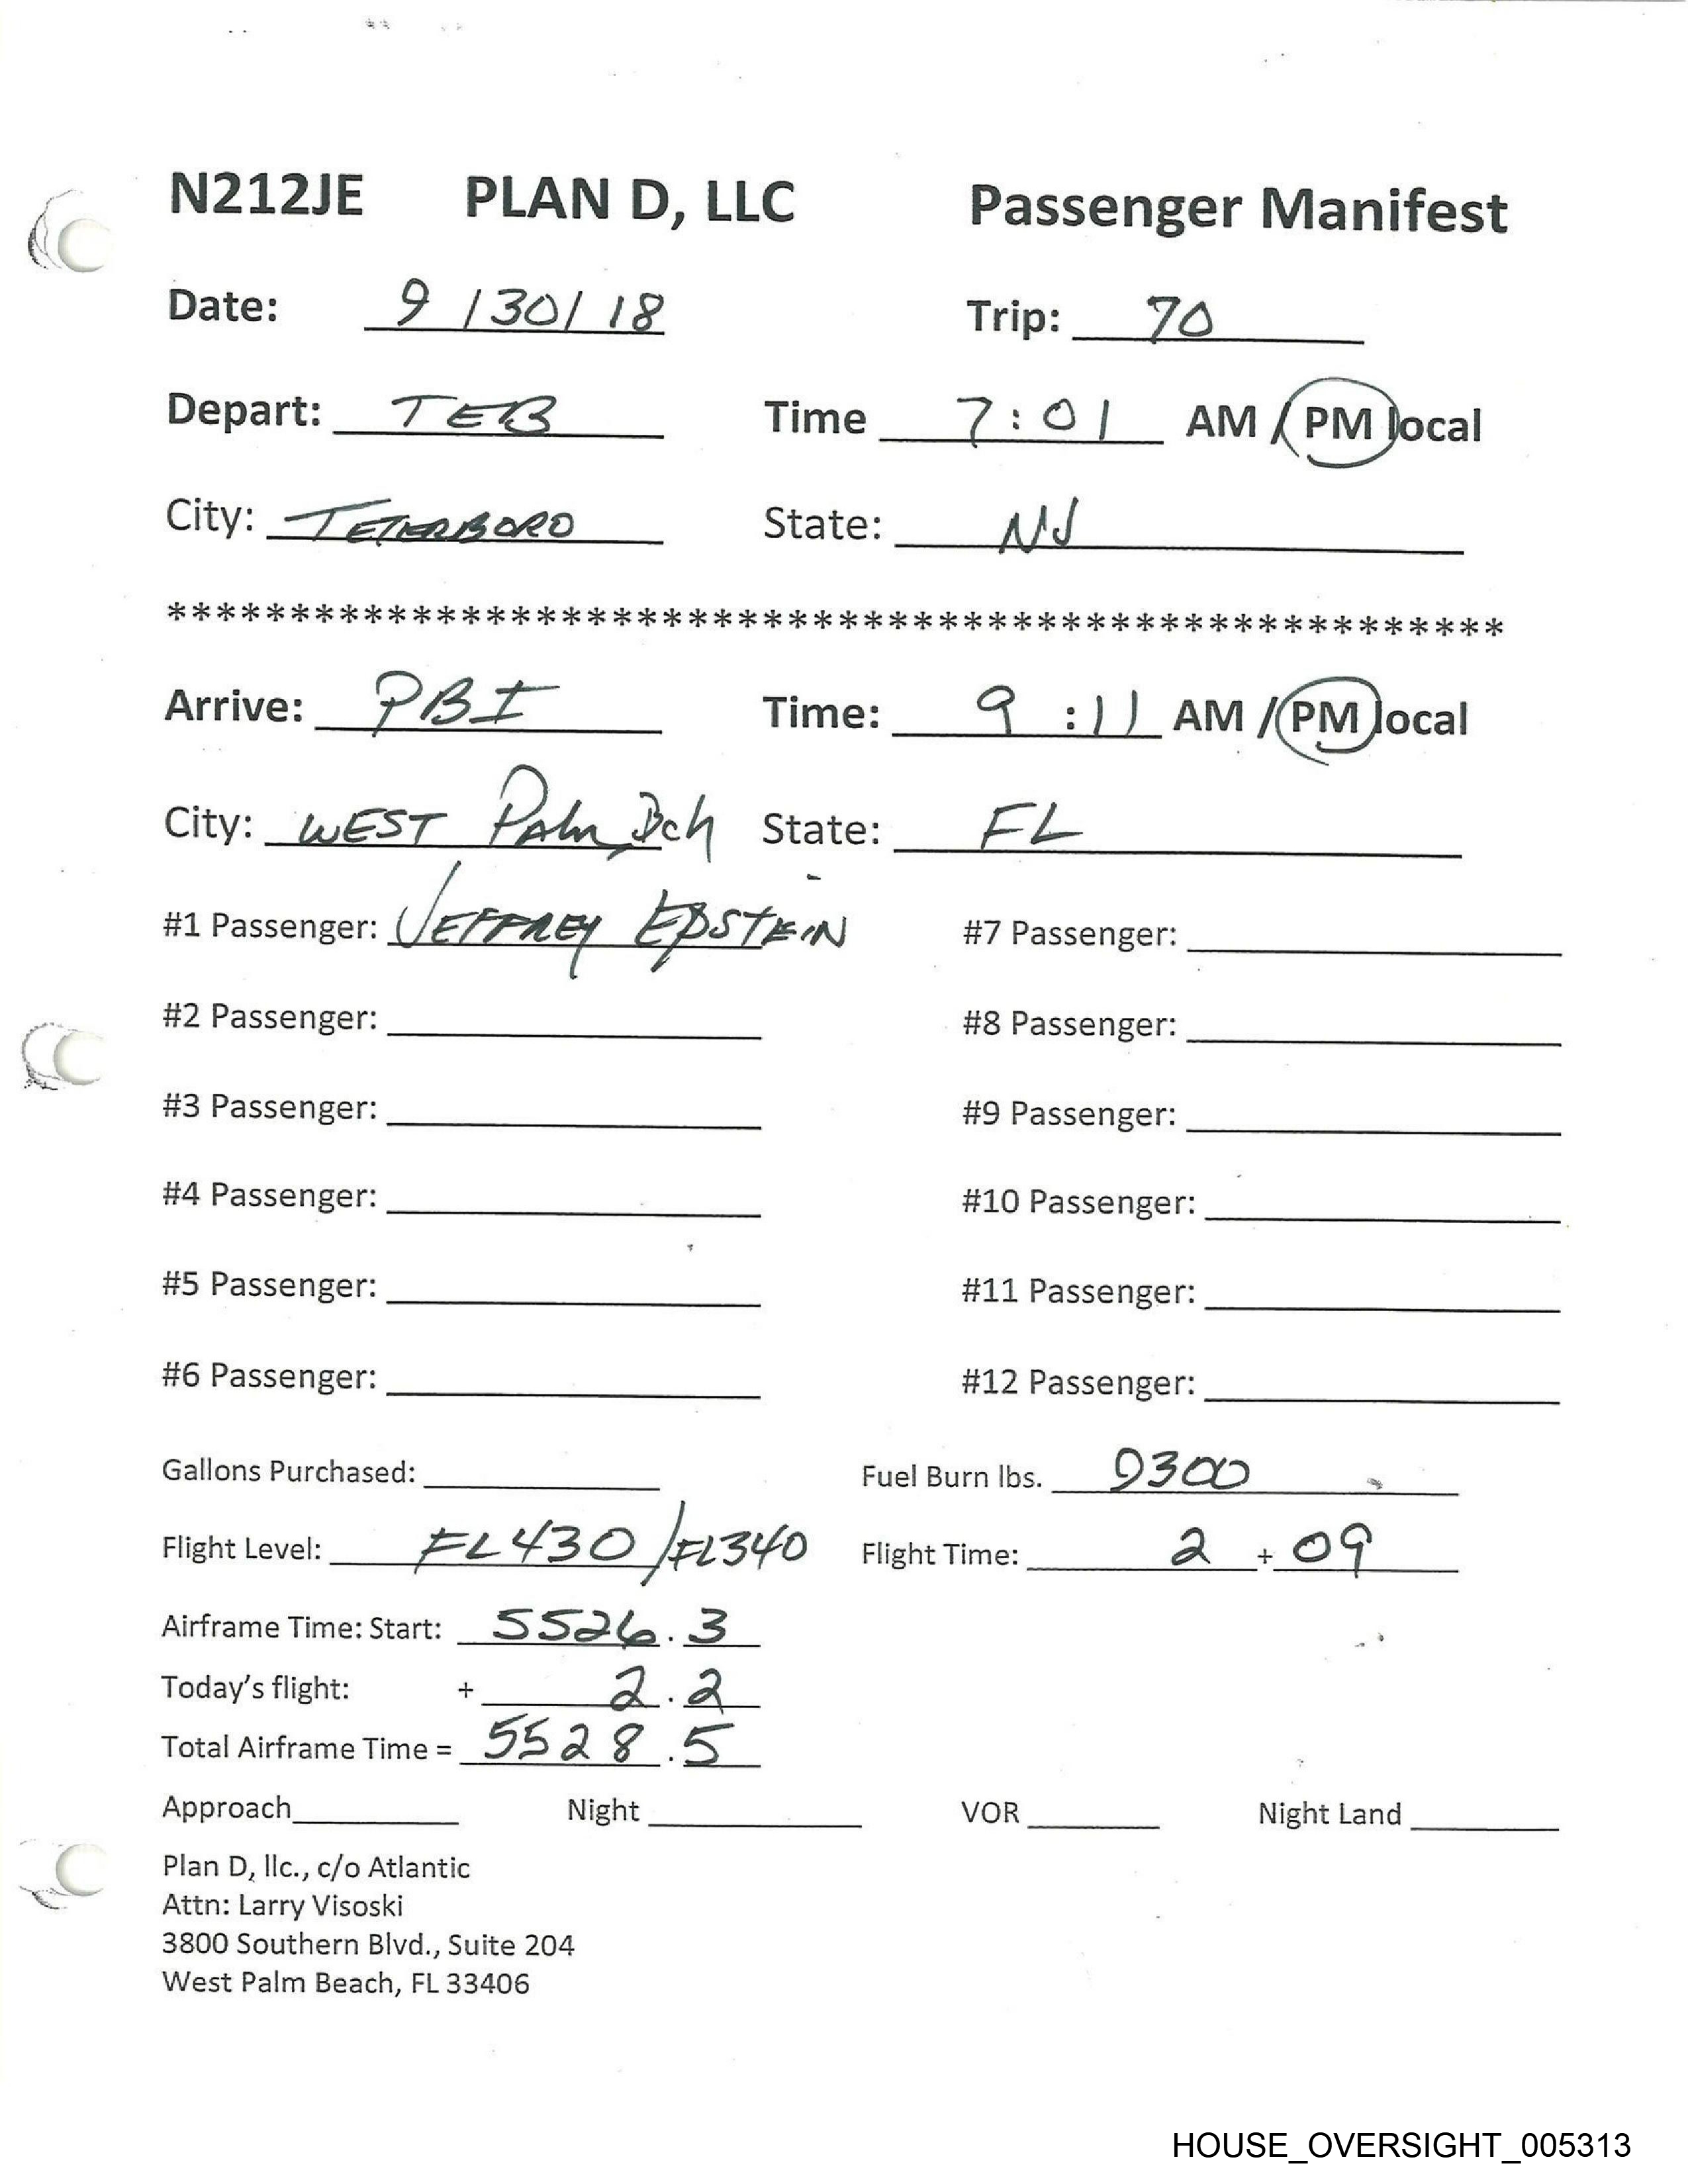 N212JE PLAN D, LLC Passenger Manifest
Date: 9 / 30 / 18 Trip: 70
Depart: TEB Time 7:01 AM / PM local
City: TETERBORO State: NJ
******************************************************
Arrive: PBI Time: 9:11 AM / PM local
City: WEST Palm Bch State: FL
#1 Passenger: JEFFREY EPSTEIN #7 Passenger:
#2 Passenger: #8 Passenger:
#3 Passenger: #9 Passenger:
#4 Passenger: #10 Passenger:
#5 Passenger: #11 Passenger:
#6 Passenger: #12 Passenger:
Gallons Purchased: Fuel Burn lbs. 9300
Flight Level: FL430 / FL340 Flight Time: 2 + 09
Airframe Time: Start: 5526.3
Today's flight: + 2.2
Total Airframe Time = 5528.5
Approach Night VOR Night Land
Plan D, llc., c/o Atlantic
Attn: Larry Visoski
3800 Southern Blvd., Suite 204
West Palm Beach, FL 33406
HOUSE_OVERSIGHT_005313